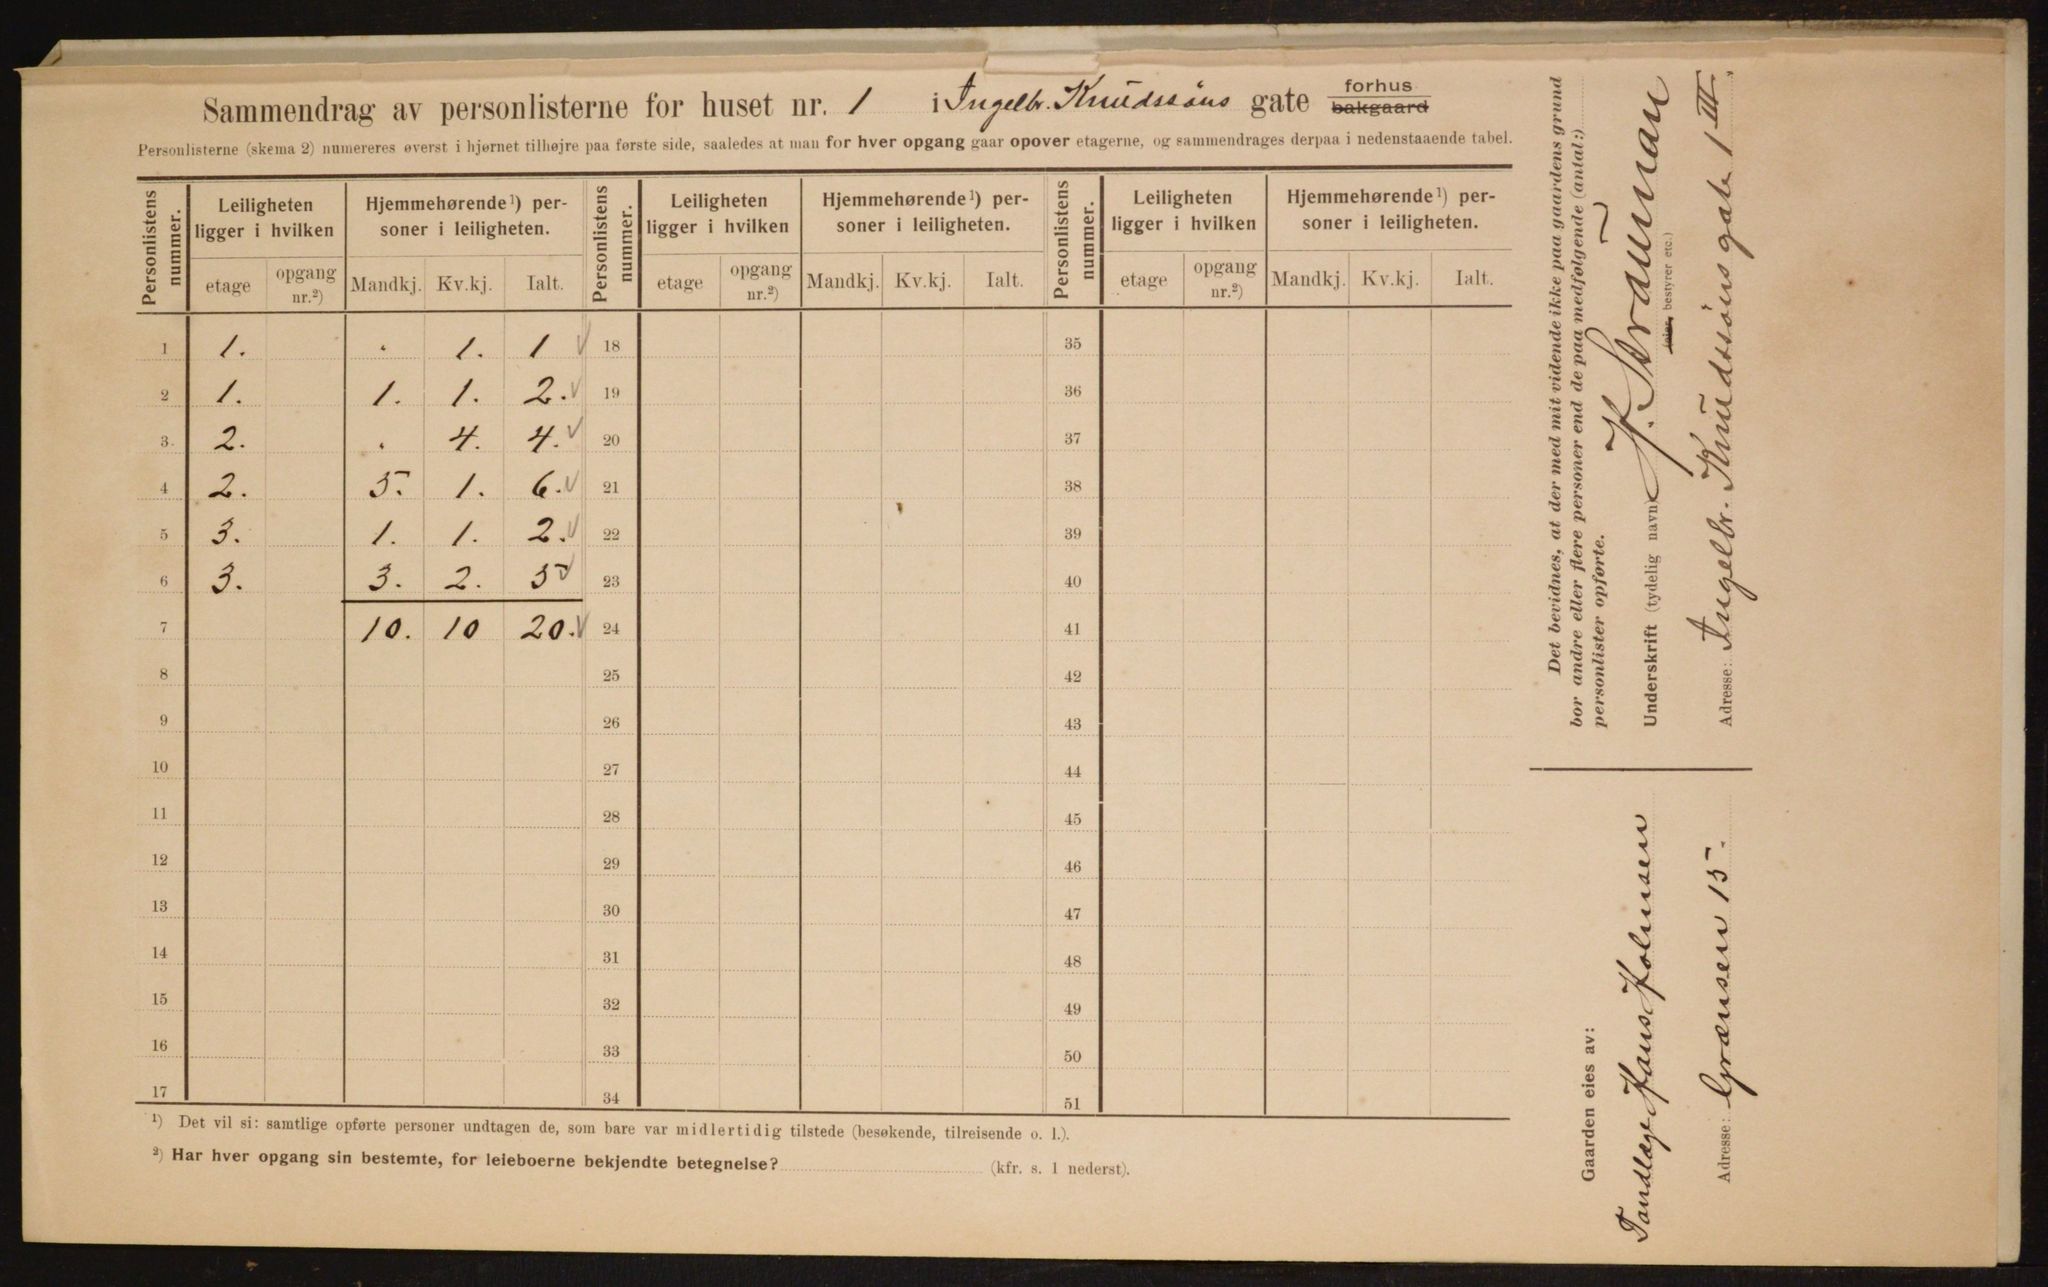 Sammendrag av personlisterne for huset nr. 1 i Ingelbr. Knudssøns gate forhus bakgaard
Personlisterne (skema 2) numereres øverst i hjørnet tilhøjre paa første side, saaledes at man for hver opgang gaar opover etagerne, og sammendrages derpaa i nedenstaaende tabel.
Personlistens nummer. Leiligheten ligger i hvilken Hjemmehørende ¹) personer i leiligheten. Personlistens nummer. Leiligheten ligger i hvilken Hjemmehørende ¹) personer i leiligheten. Personlistens nummer. Leiligheten ligger i hvilken Hjemmehørende ¹) personer i leiligheten.
etage opgang nr.²) Mandkj. Kv.kj. Ialt. etage opgang nr.²) Mandkj. Kv.kj. Ialt. etage opgang nr.²) Mandkj. Kv.kj. Ialt.
1 1. . 1. 1 18 35
2 1. 1. 1. 2. 19 36
3 2. . 4. 4. 20 37
4 2. 5. 1. 6. 21 38
5 3. 1. 1. 2. 22 39
6 3. 3. 2. 5 23 40
7 10. 10 20. 24 41
8 25 42
9 26 43
10 27 44
11 28 45
12 29 46
13 30 47
14 31 48
15 32 49
16 33 50
17 34 51
¹) Det vil si: samtlige opførte personer undtagen de, som bare var midlertidig tilstede (besøkende, tilreisende o. l.).
²) Har hver opgang sin bestemte, for leieboerne bekjendte betegnelse? (kfr. s. 1 nederst).
Det bevidnes, at der med mit vidende ikke paa gaardens grund
bor andre eller flere personer end de paa medfølgende (antal:)
personlister opførte.
Underskrift (tydelig navn)
(eier, bestyrer etc.)
Adresse: Ingelbr. Knudssøns gate 1 III
Gaarden eies av:
Tandlæge Hans Holmsen
Adresse: Grænsen 15.